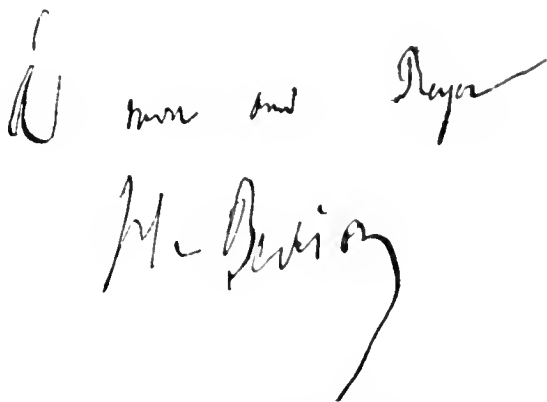 À mon ami Reyer
H. Berlioz